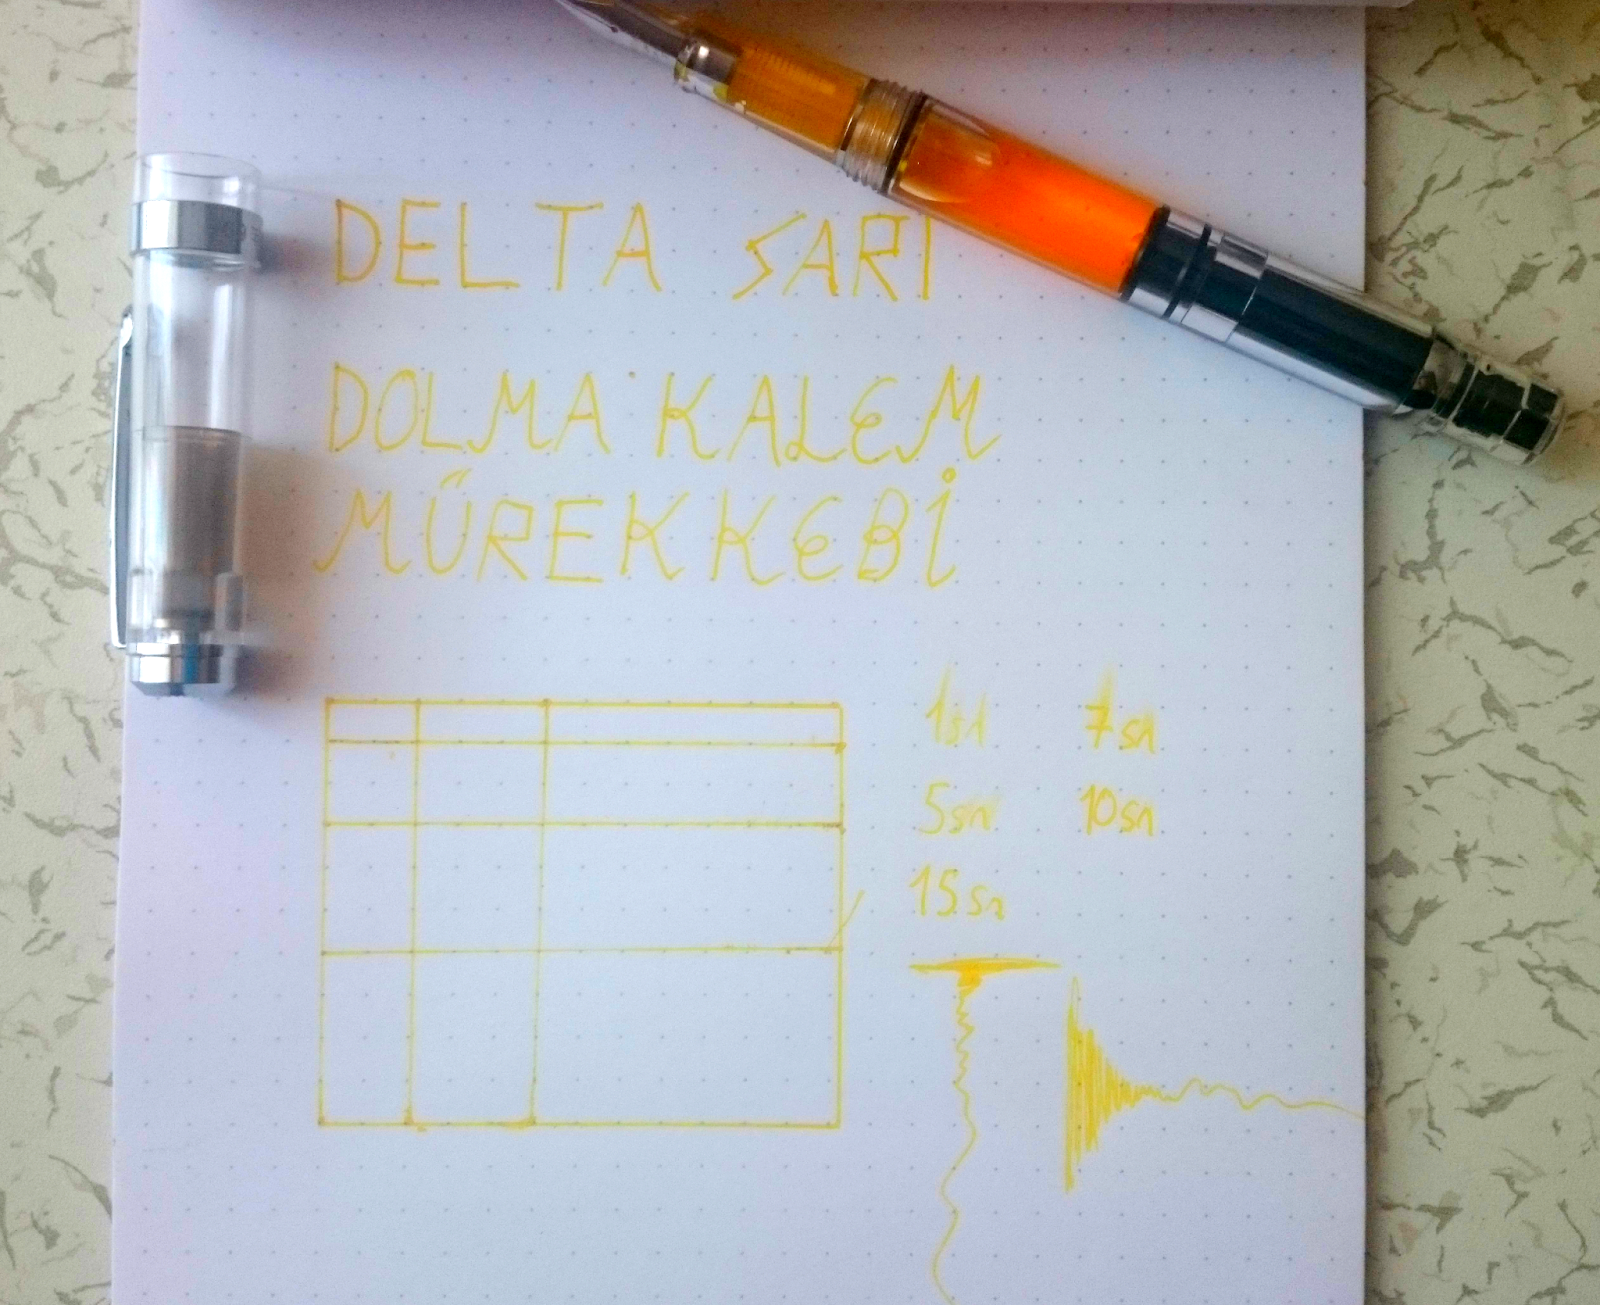 DELTA SARI
DOLMA KALEM
MÜREKKEBİ
1sn 7sn
5sn 10sn
15sn